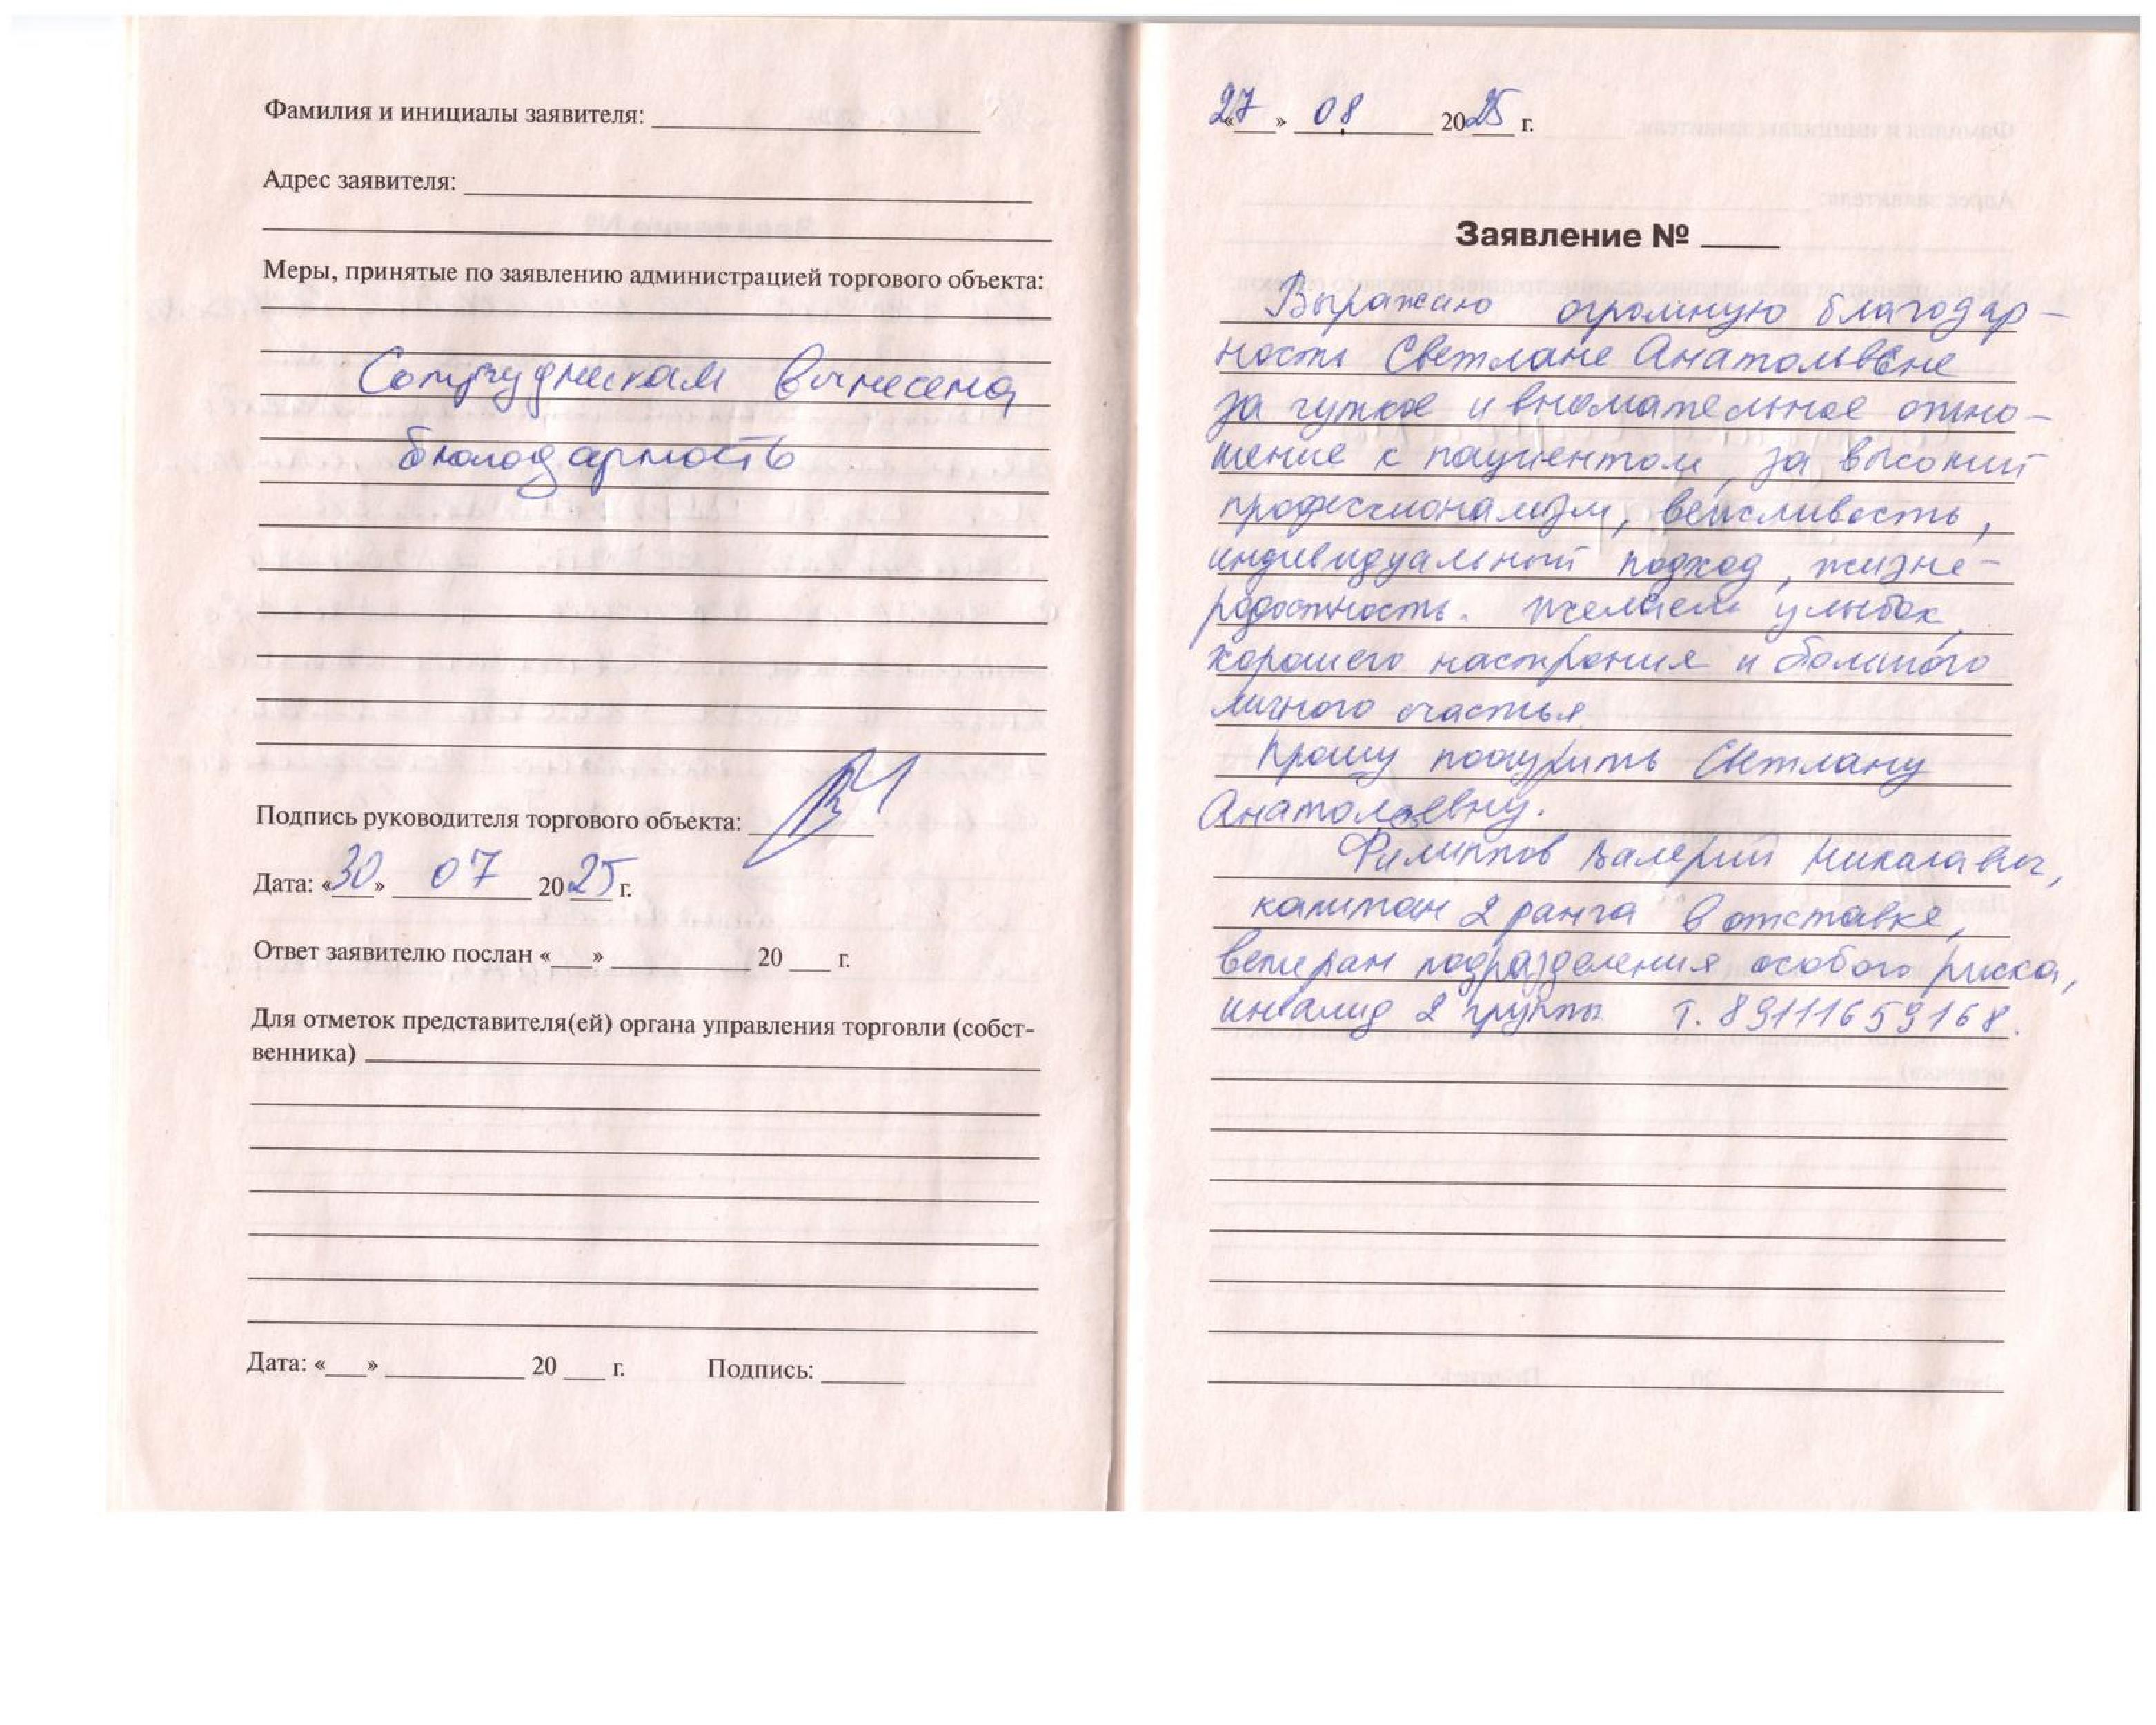 Фамилия и инициалы заявителя:
Адрес заявителя:
Меры, принятые по заявлению администрацией торгового объекта:
Сотрудникам вынесена
благодарность
Подпись руководителя торгового объекта:
Дата: «30» 07 2025 г.
Ответ заявителю послан «___» ________ 20 ___ г.
Для отметок представителя(ей) органа управления торговли (собст-
венника)
Дата: «___» ________ 20 ___ г. Подпись: ______
«27» 08 2025 г.
Заявление № ____
Выражаю огромную благодар-
ность Светлане Анатольевне
за чуткое и внимательное отно-
шение к пациентам, за высокий
профессионализм, вежливость,
индивидуальный подход, жизне-
радостность. Желаем улыбок,
хорошего настроения и большого
личного счастья.
Прошу поощрить Светлану
Анатольевну.
Филиппов Валерий Николаевич,
капитан 2 ранга в отставке,
ветеран подразделения особого риска,
инвалид 2 группы Т. 89111659168.